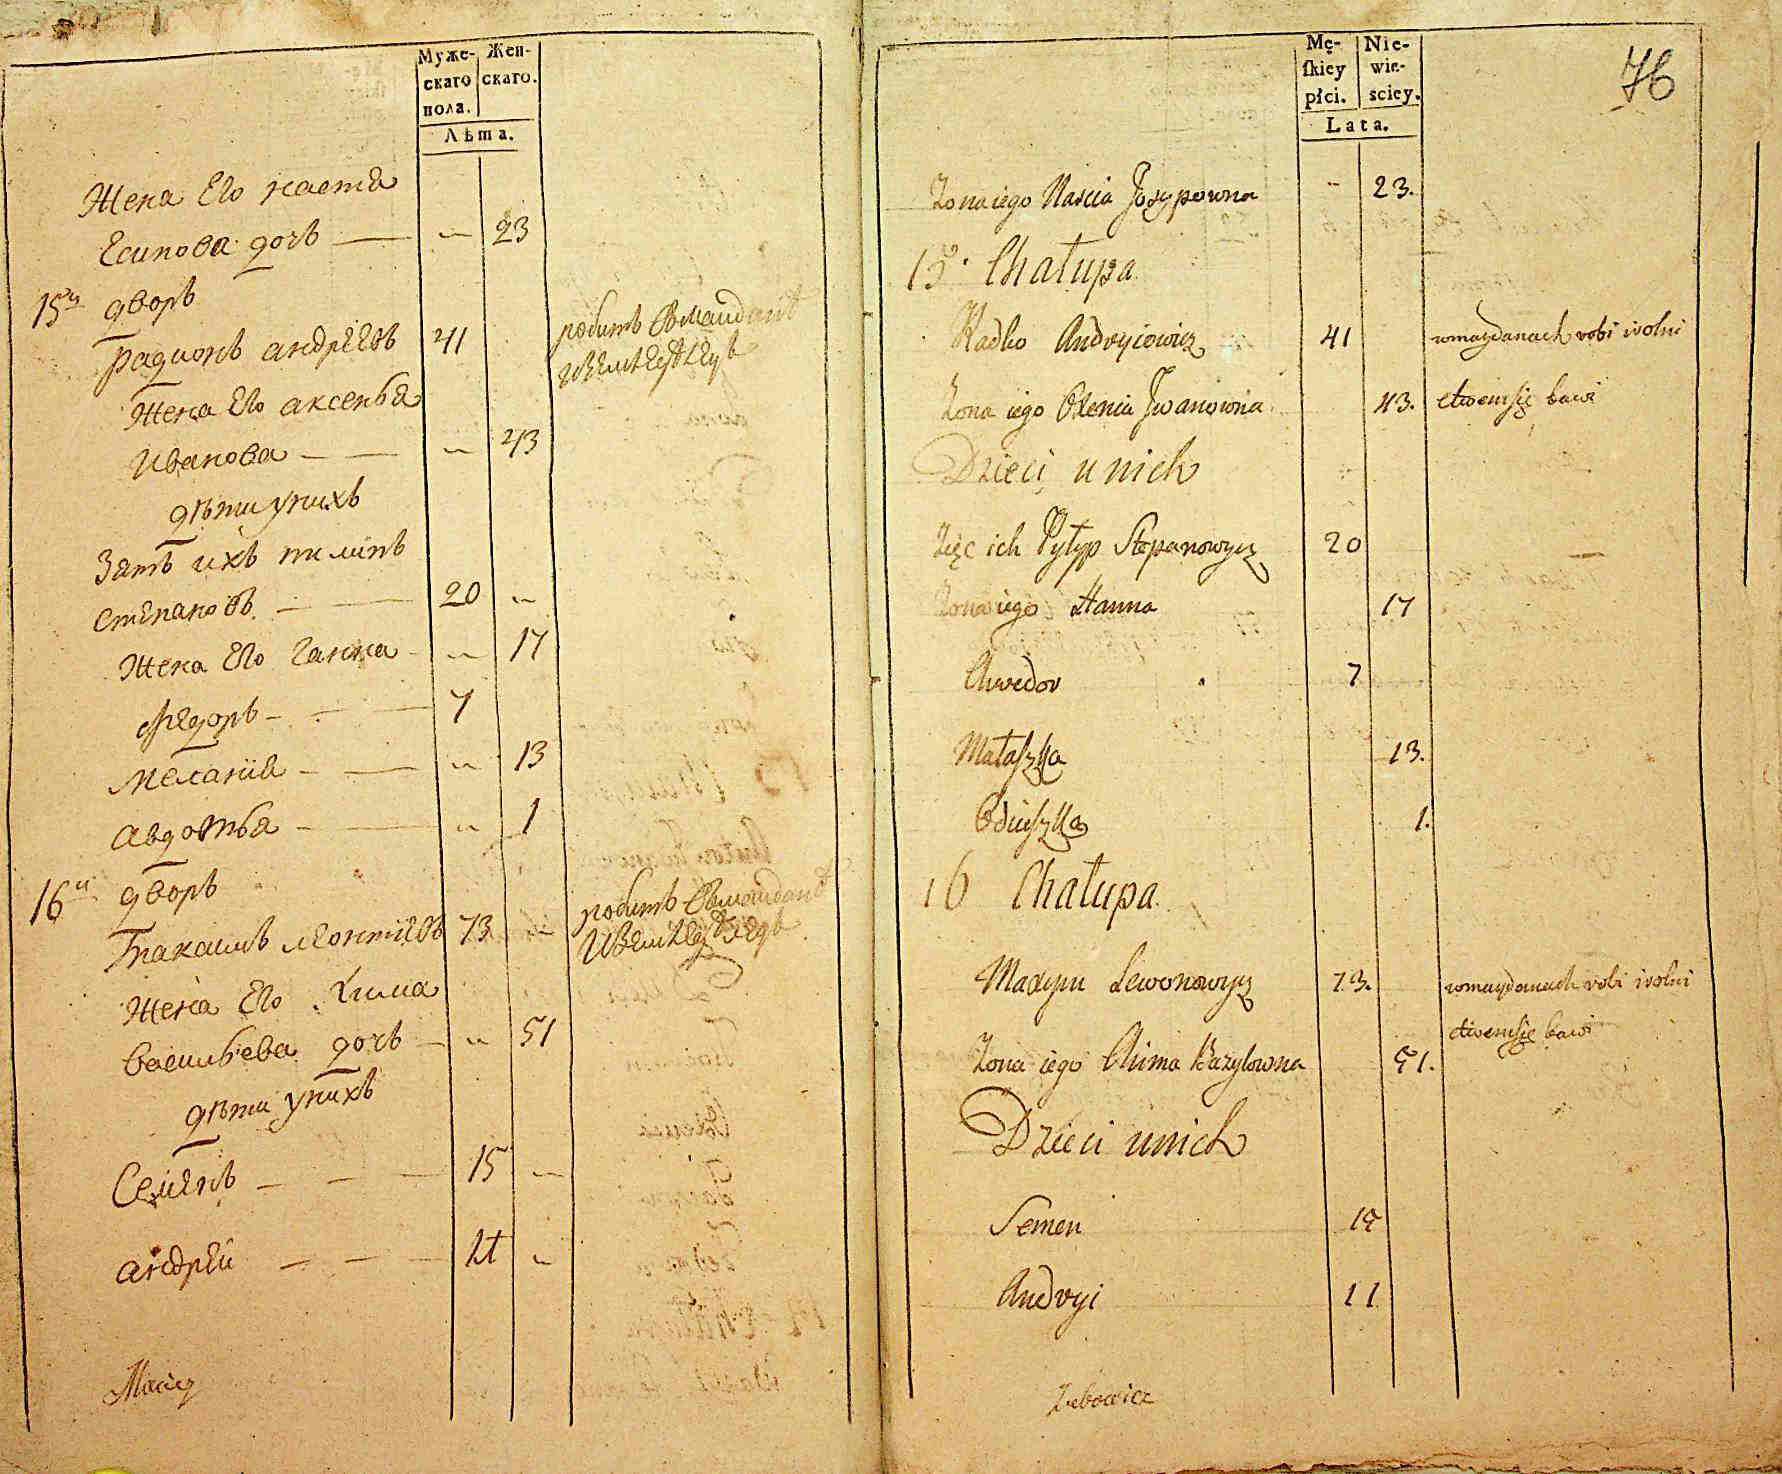 Муже-
скаго
пола.
Жен-
скаго.
Лѣта.
Жена Его настя
Есипова дочь — 23
15й дворъ
радионъ андрѣевъ 41
робитъ вмайданѣ
Жена Его аксенья
Иванова — 43
дѣти унихъ
Зять ихъ пилипъ
степановъ — 20
Жена Его Ганна — 17
Ѳедоръ — 7
меланія — 13
авдотья — 1
16й дворъ
леонтиевъ 73
робитъ вмайданѣ
Жена Его Хима
васильева дочь — 51
дѣти унихъ
Семенъ — 15
андрѣй — 11
Maciey
76
Mę-
ſkiey
płci.
Nie-
wie-
sciey.
Lata.
Zona iego Nascia Jozypowna 23.
15. Chałupa
Radko Andryiowicz 41 wmaydanach robi irolni
Zona iego Oxenia Jwanowna 43. ctwemsię bawi
Dzieci u nich
Zięc ich Pyłyp Stepanowycz 20
Zona iego Hanna 17
Chwedor 7
Małaszka 13.
Odiuszka 1.
16 Chałupa
Maxym Lewonowycz 73. wmaydanach robi irolni
ctwemsię bawi
Zona iego Chima Bazylowna 51.
Dzieci unich
Semen 15
Andryi 11
Zebowicz